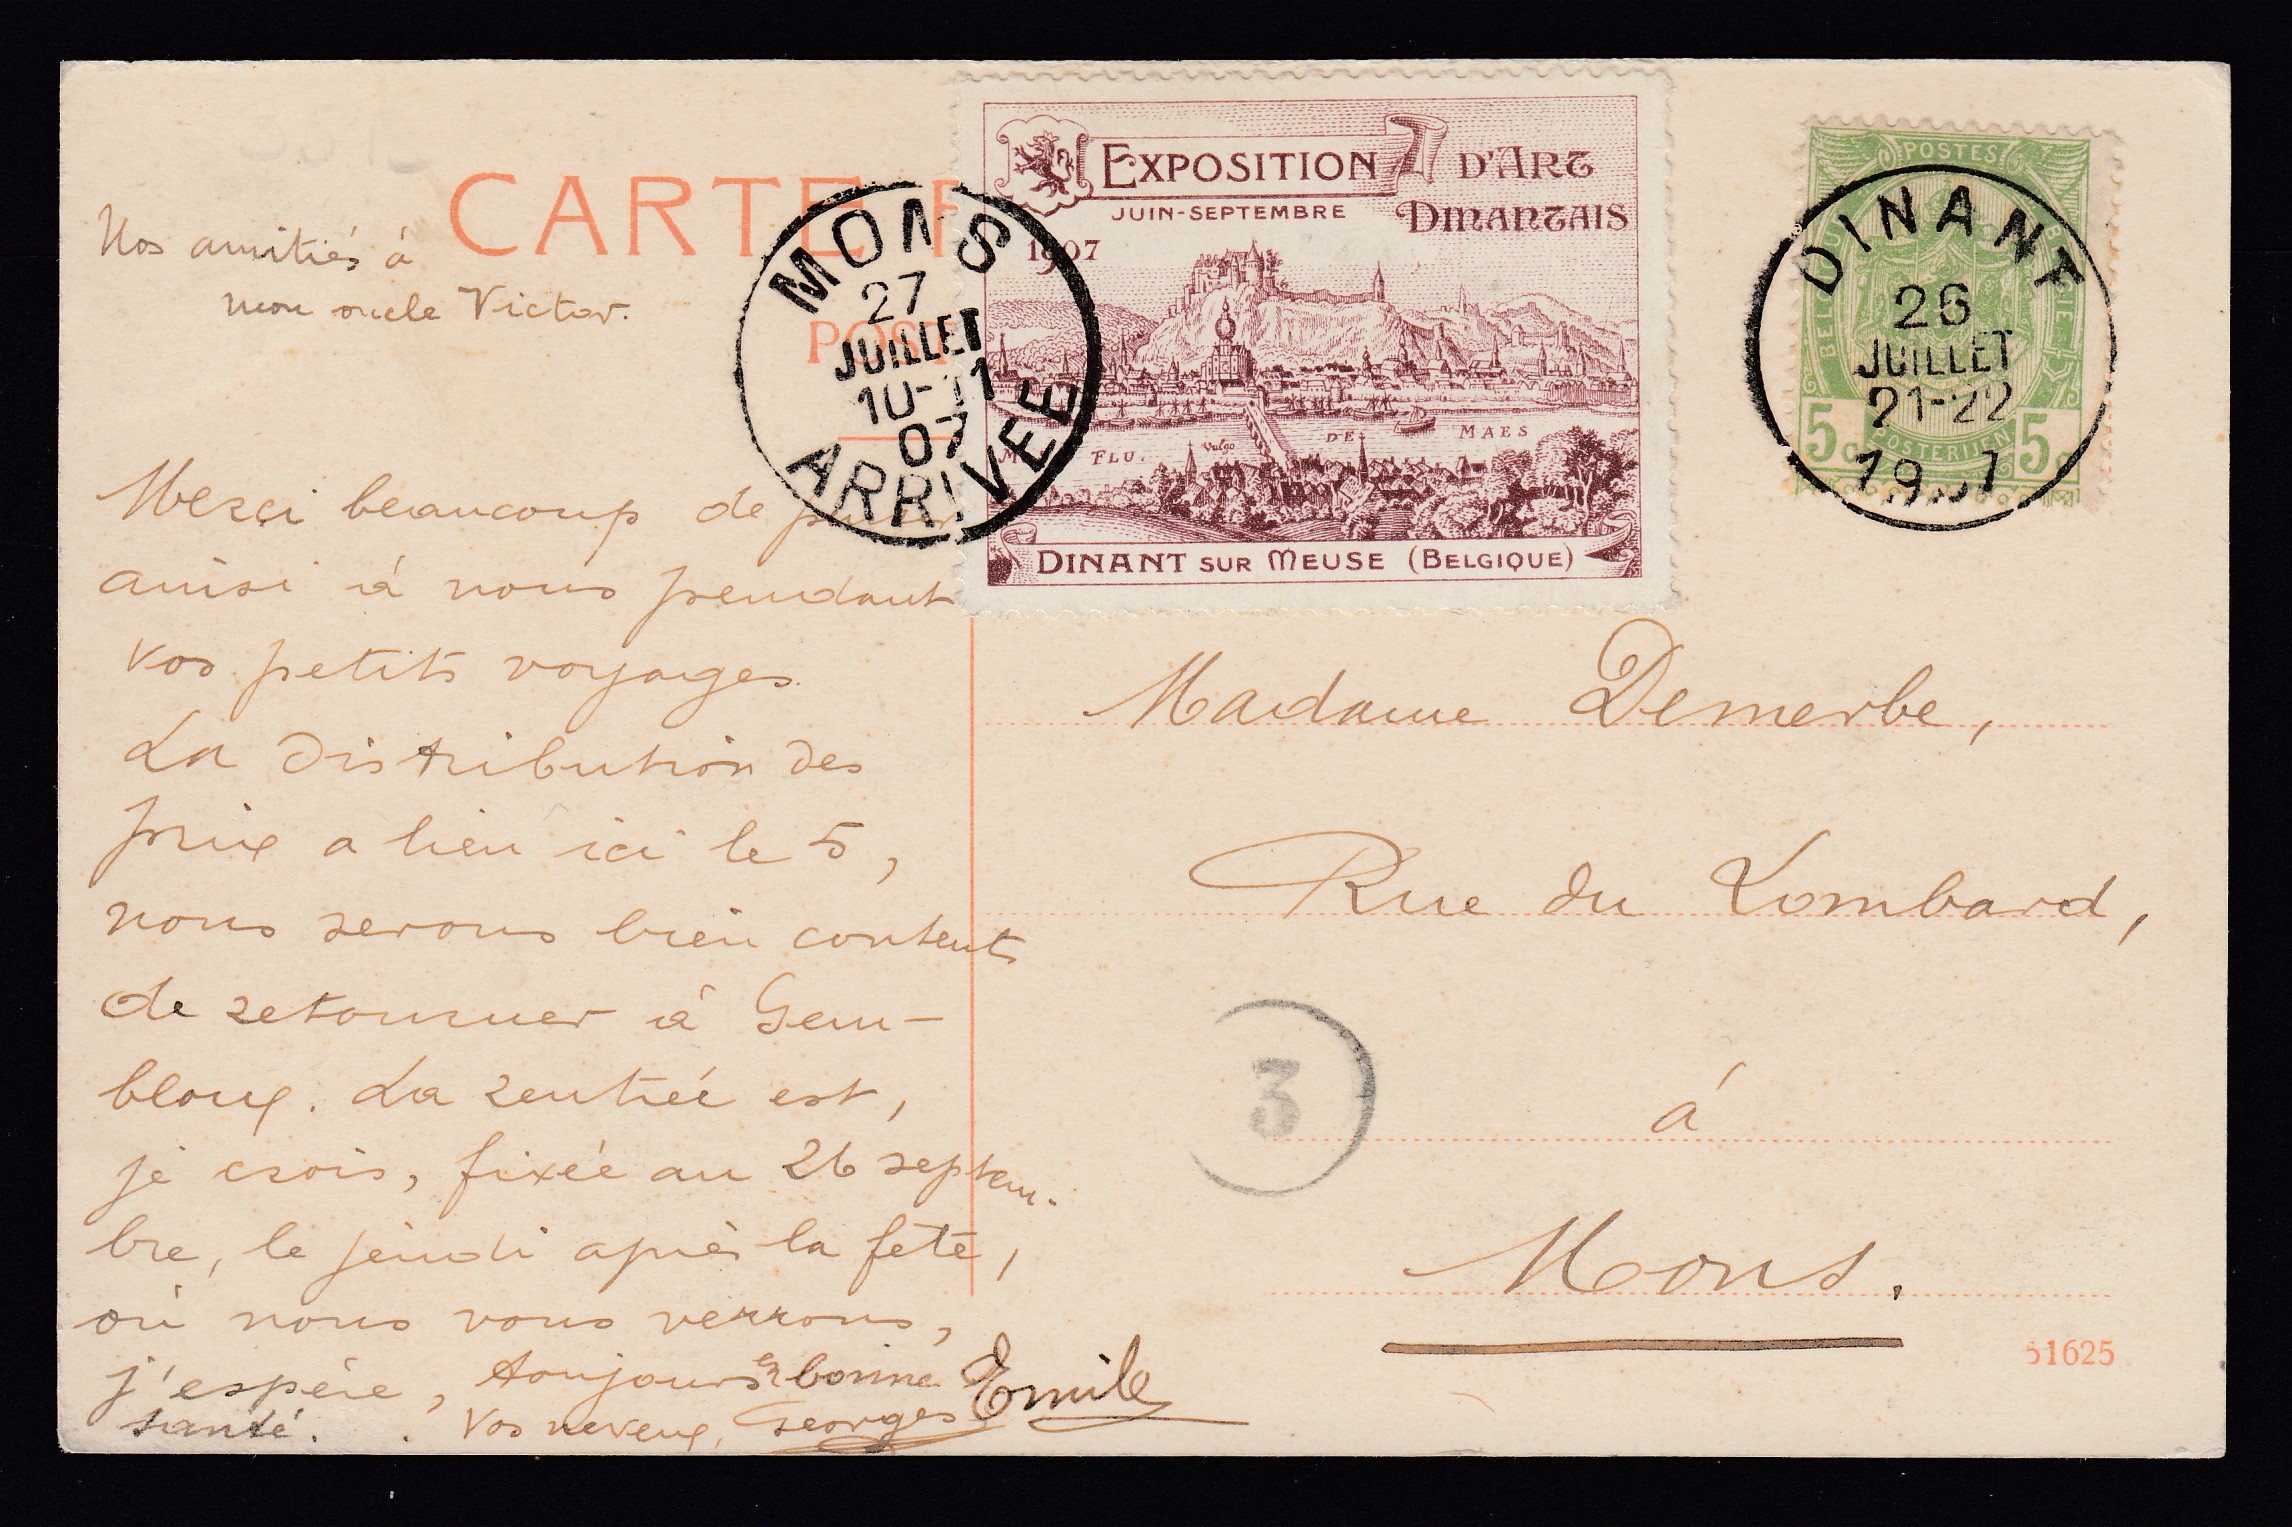 CARTE P
POST
Nos amitiés à
mon oncle Victor.
Merci beaucoup de penser
ainsi à nous pendant
vos petits voyages.
La distribution des
prix a lieu ici le 5,
nous serons bien contents
de retourner à Gem-
bloux. La rentrée est,
je crois, fixée au 26 septem-
bre, le jeudi après la fête,
où nous vous verrons,
j'espère, toujours en bonne
santé. Vos neveux, Georges Emile
MONS
27
JUILLET
10-11
07
ARRIVEE
EXPOSITION D'ART
JUIN-SEPTEMBRE DINANTAIS
1907
FLU. vulgo DE MAES
DINANT SUR MEUSE (BELGIQUE)
POSTES
BELGIQUE BELGIE
5c POSTERIJEN 5c
DINANT
26
JUILLET
21-22
1907
Madame Demerbe,
Rue du Lombard,
3
à
Mons.
51625